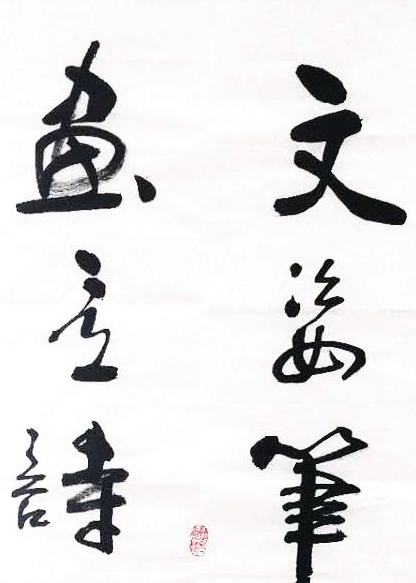 文姿筆
畫意詩